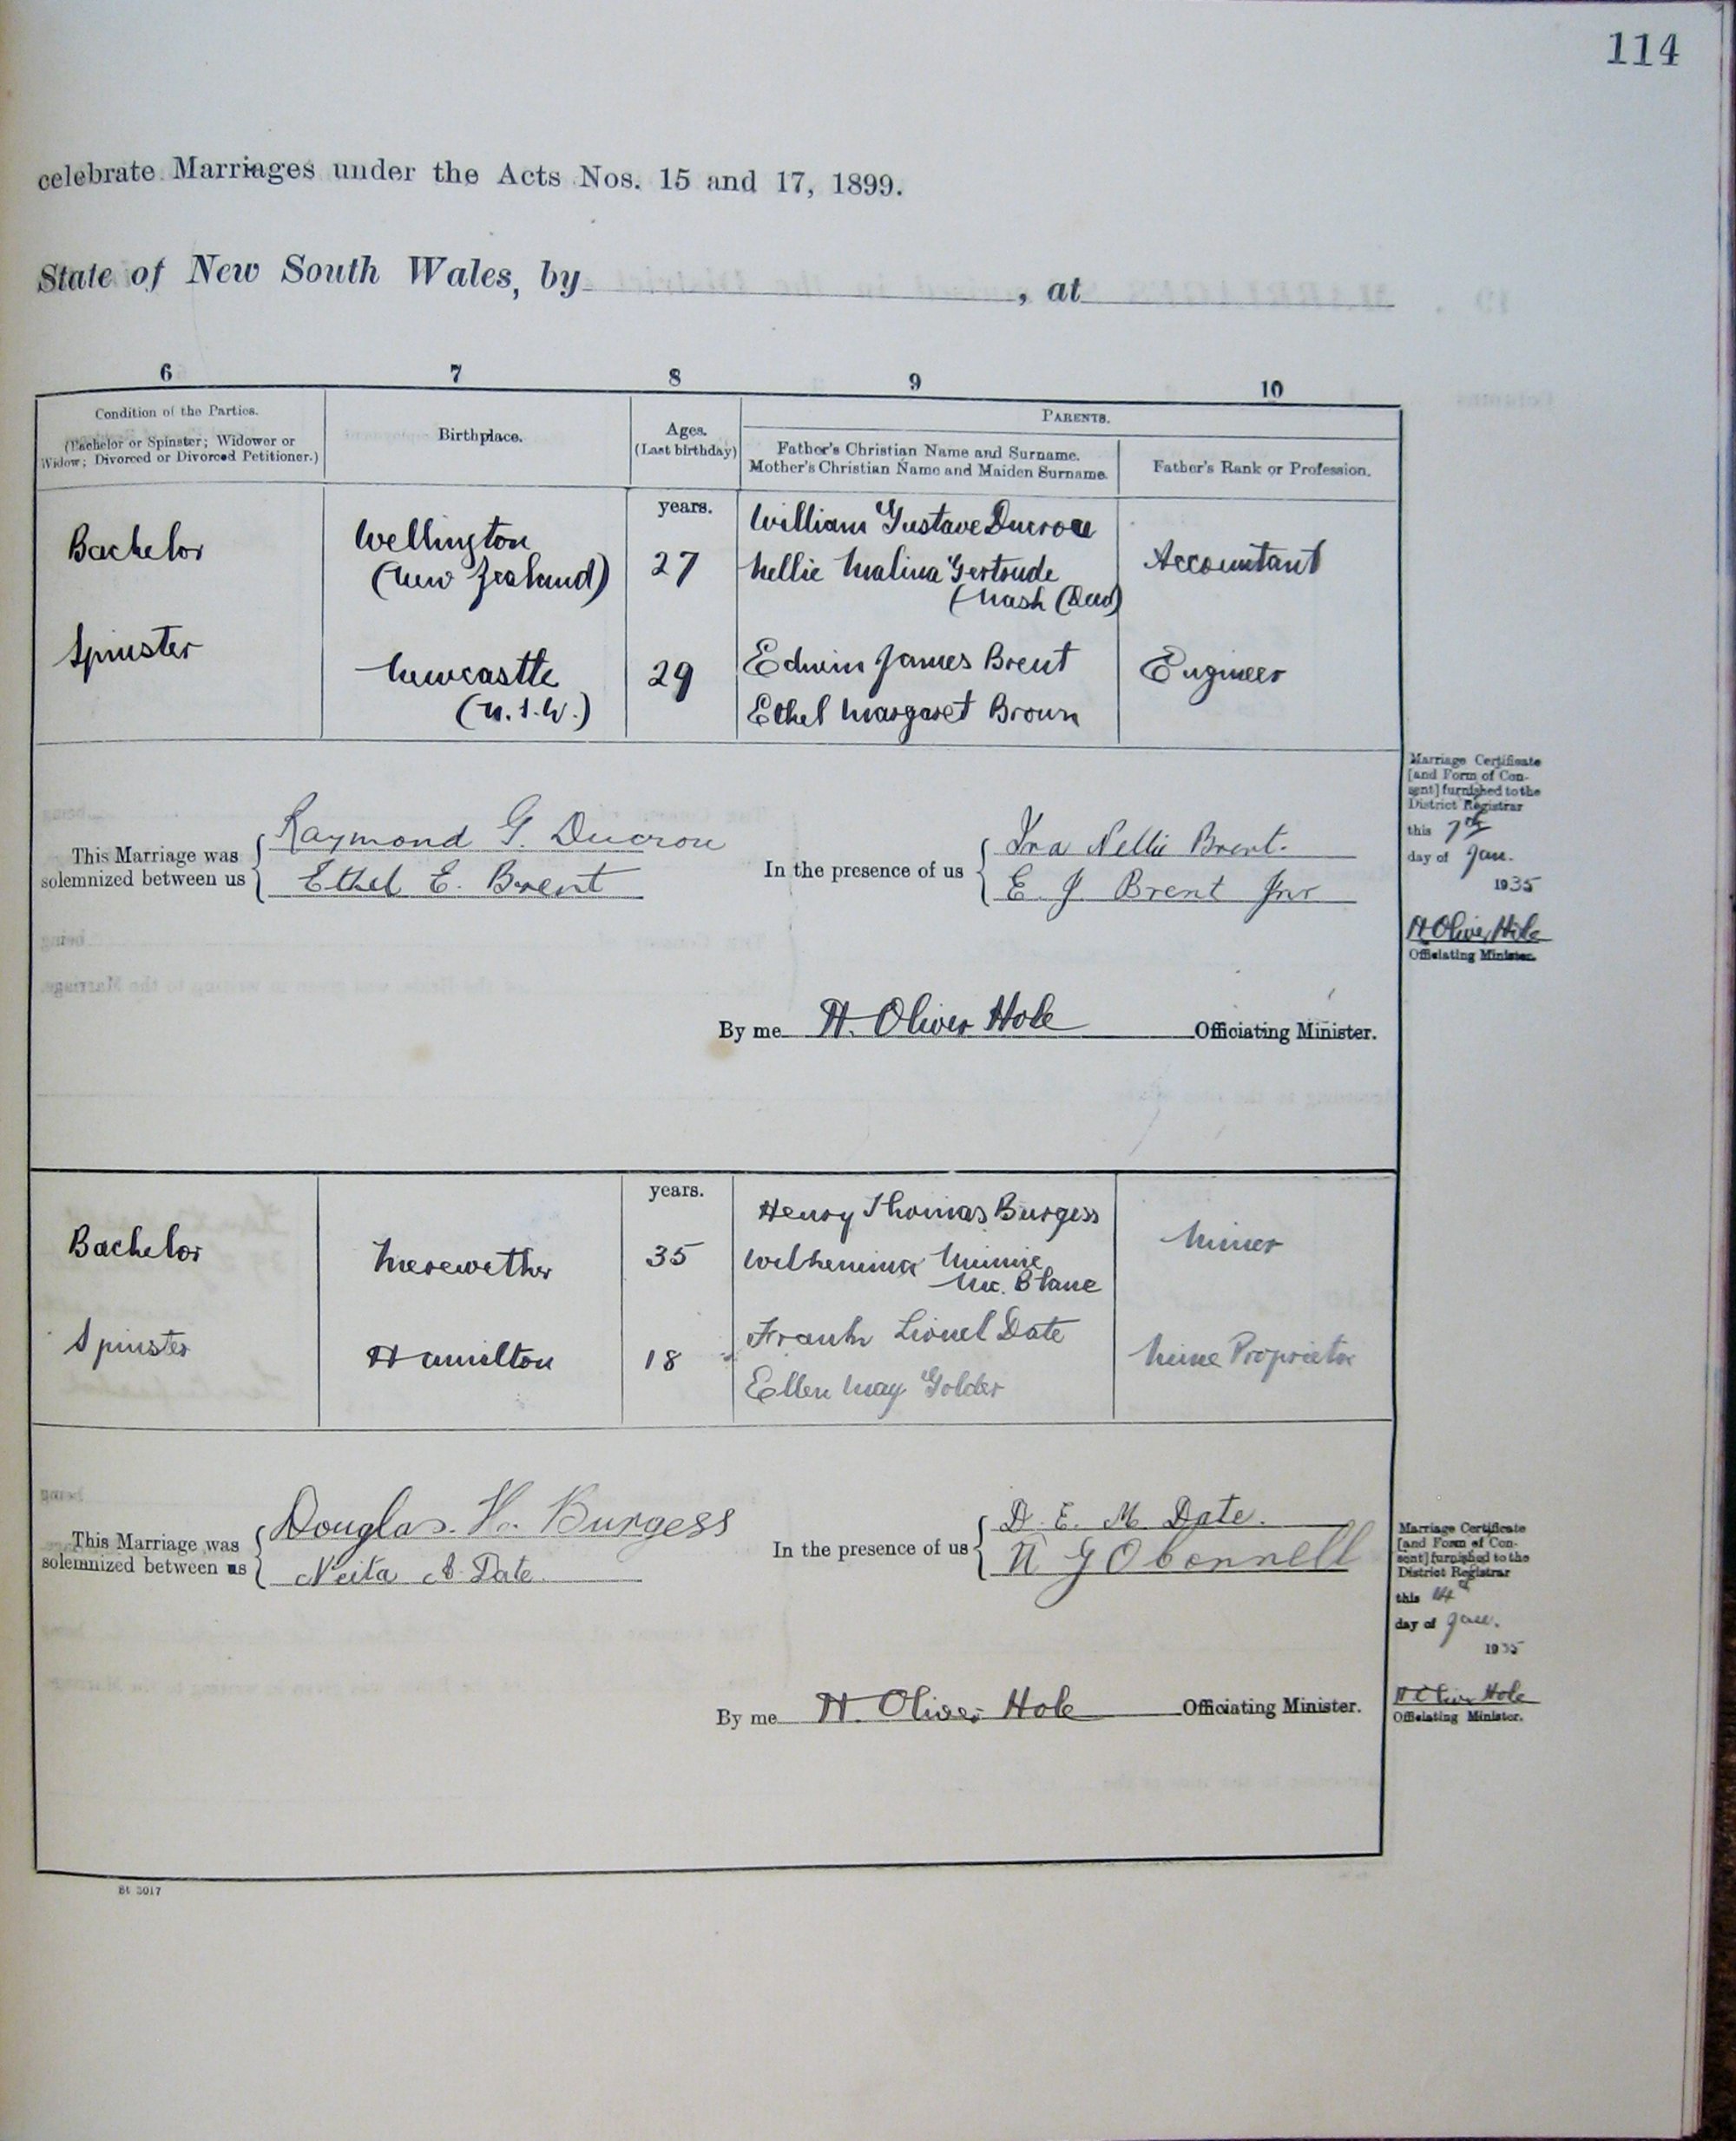 114
celebrate Marriages under the Acts Nos. 15 and 17, 1899.
State of New South Wales, by , at
6 7 8 9 10
Condition of the Parties.
(Bachelor or Spinster; Widower or
Widow; Divorced or Divorced Petitioner.)
Birthplace.
Ages.
(Last birthday)
PARENTS.
Father's Christian Name and Surname.
Mother's Christian Name and Maiden Surname.
Father's Rank or Profession.
years.
Bachelor
Wellington
(New Zealand)
27
William Gustave Ducrou
Nellie Malina Gertrude
(Nash (Decd)
Accountant
Spinster
Newcastle
(N.S.W.)
29
Edwin James Brent
Ethel Margaret Brown
Engineer
This Marriage was
solemnized between us
Raymond G. Ducrou
Ethel E. Brent
In the presence of us
Ira Nellie Brent.
E. J. Brent Jnr
Marriage Certificate
[and Form of Con-
sent] furnished to the
District Registrar
this 7th
day of Jan.
1935
H Oliver Hole
Officiating Minister.
By me H. Oliver Hole Officiating Minister.
years.
Bachelor
Merewether
35
Henry Thomas Burgess
Wilhemina Minnie
Mc. Blane
Miner
Spinster
Hamilton
18
Frank Lionel Date
Ellen May Golder
Mine Proprietor
This Marriage was
solemnized between us
Douglas. H. Burgess
Neita A. Date.
In the presence of us
D. E. M. Date.
N G O'Connell
Marriage Certificate
[and Form of Con-
sent] furnished to the
District Registrar
this 14th
day of Jan.
1935
H Oliver Hole
Officiating Minister.
By me H. Oliver Hole Officiating Minister.
St 3017